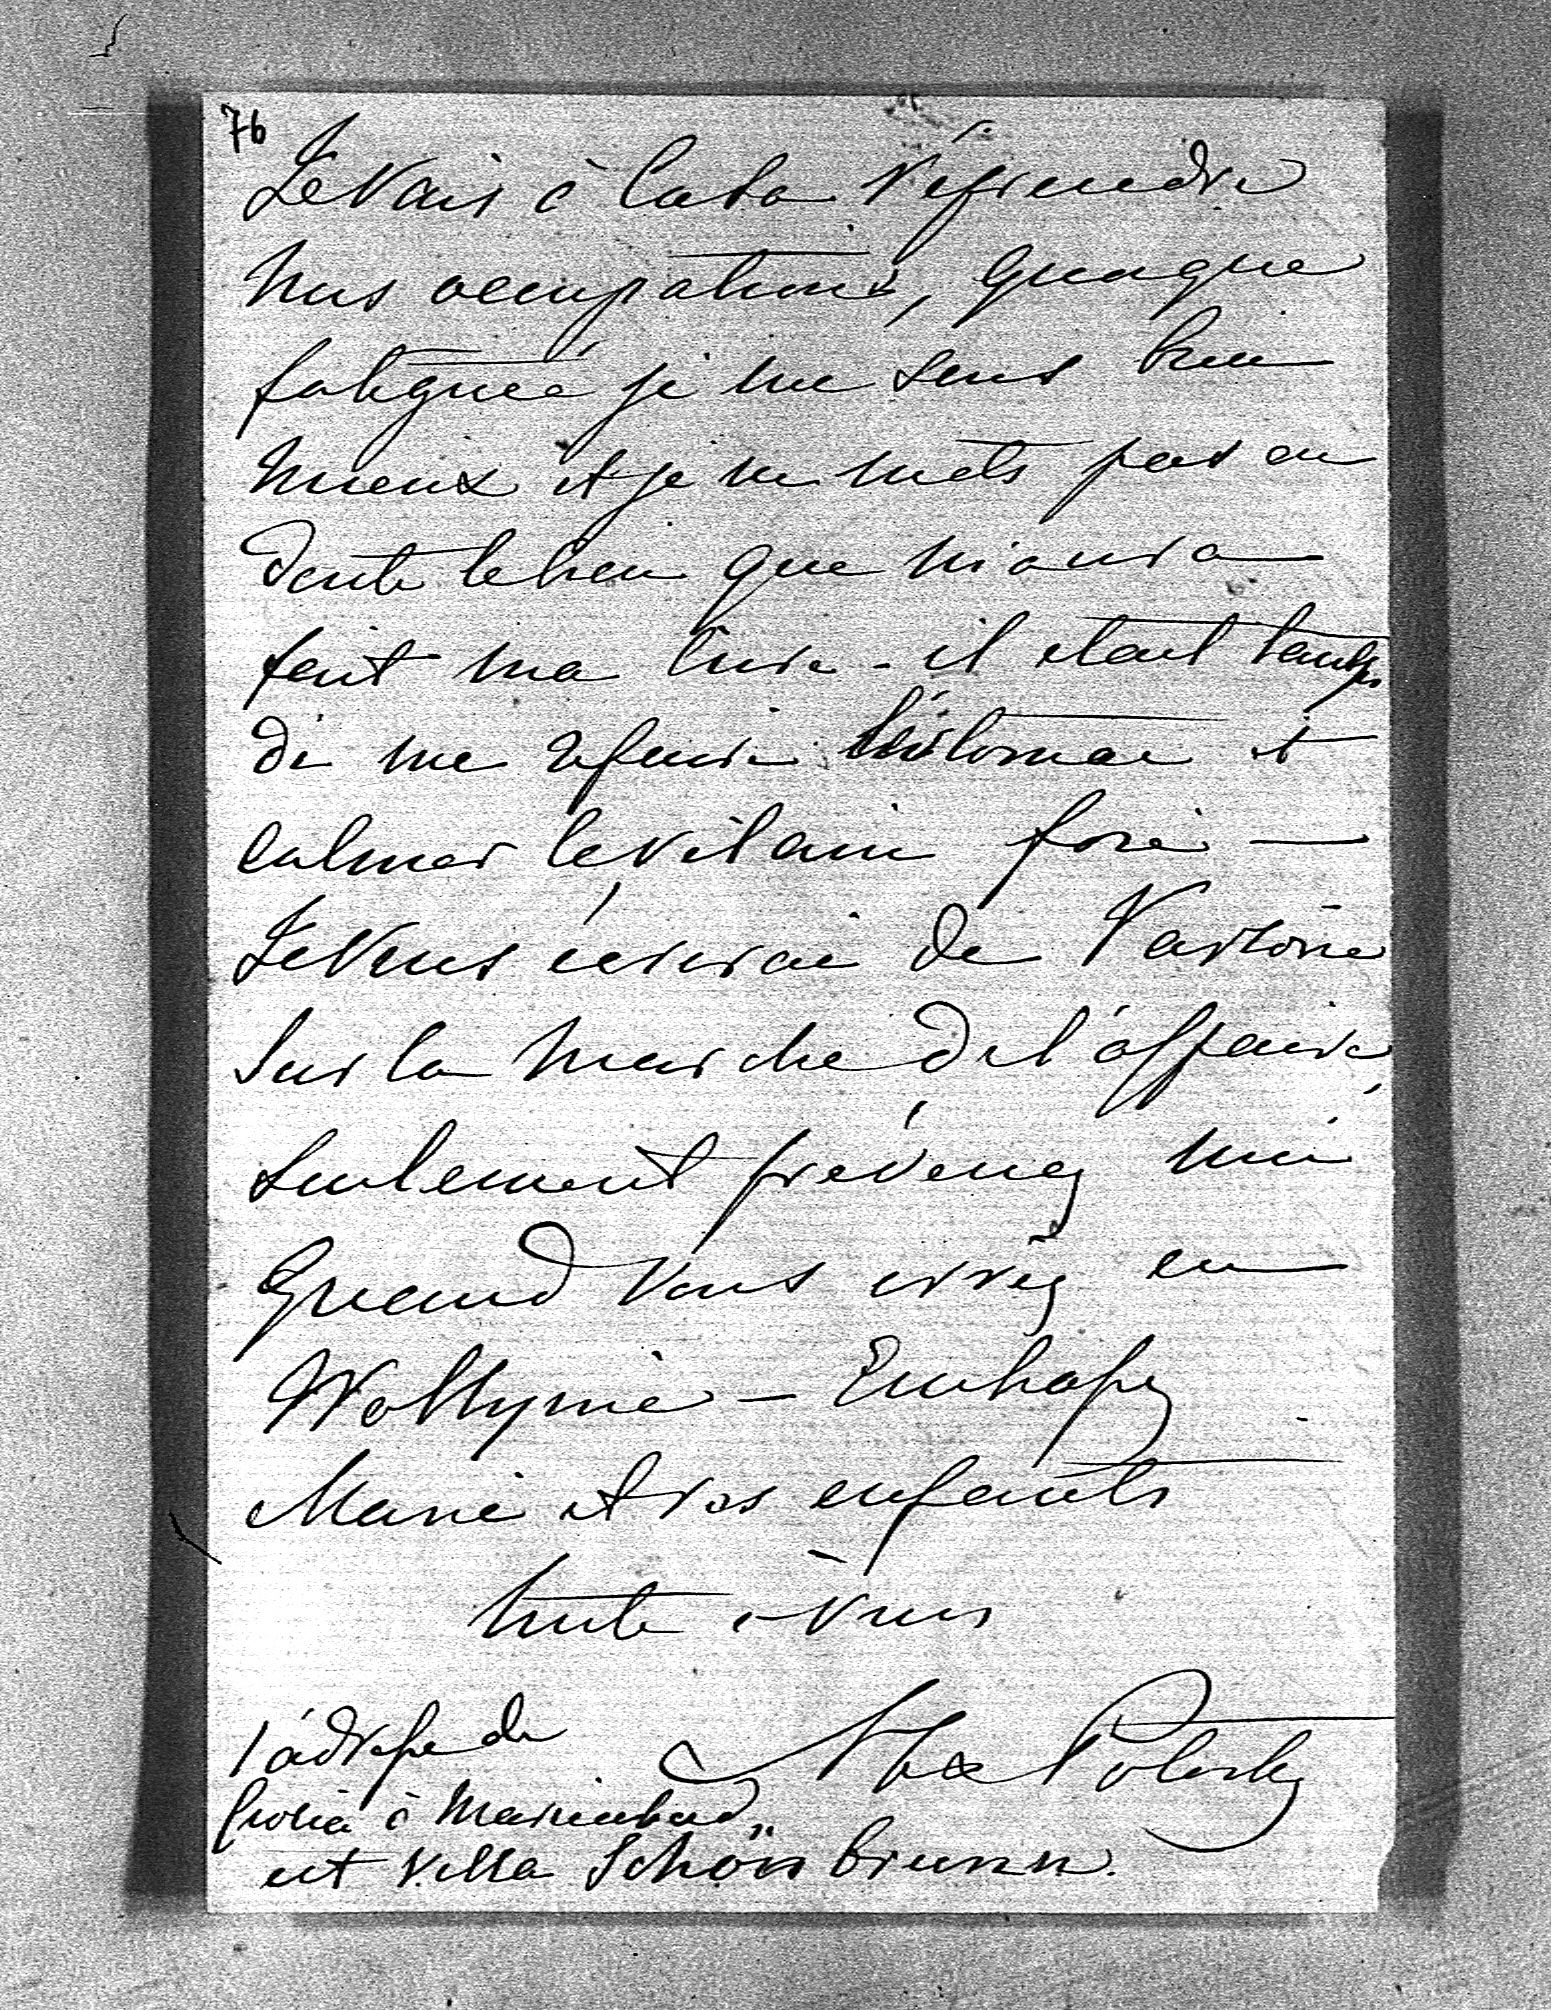 76
Je vais à reprendre
nos occupations, quoique
fatiguée je me sens bien
mieux et je ne mets pas en
doute le bien que m'aura
fait ma cure - il etait temps
de me refaire l'éstomac et
calmer le vilain foie —
Je vous écrirai de Varsovie
sur la marche de l'affaire,
seulement prévenez moi
quand vous irez en
Wolhynie — Embrassez
Marie et vos enfants
toute à vous
Alex Potocky
l'adresse de
à Marienbad,
est Villa Schönbrunn.